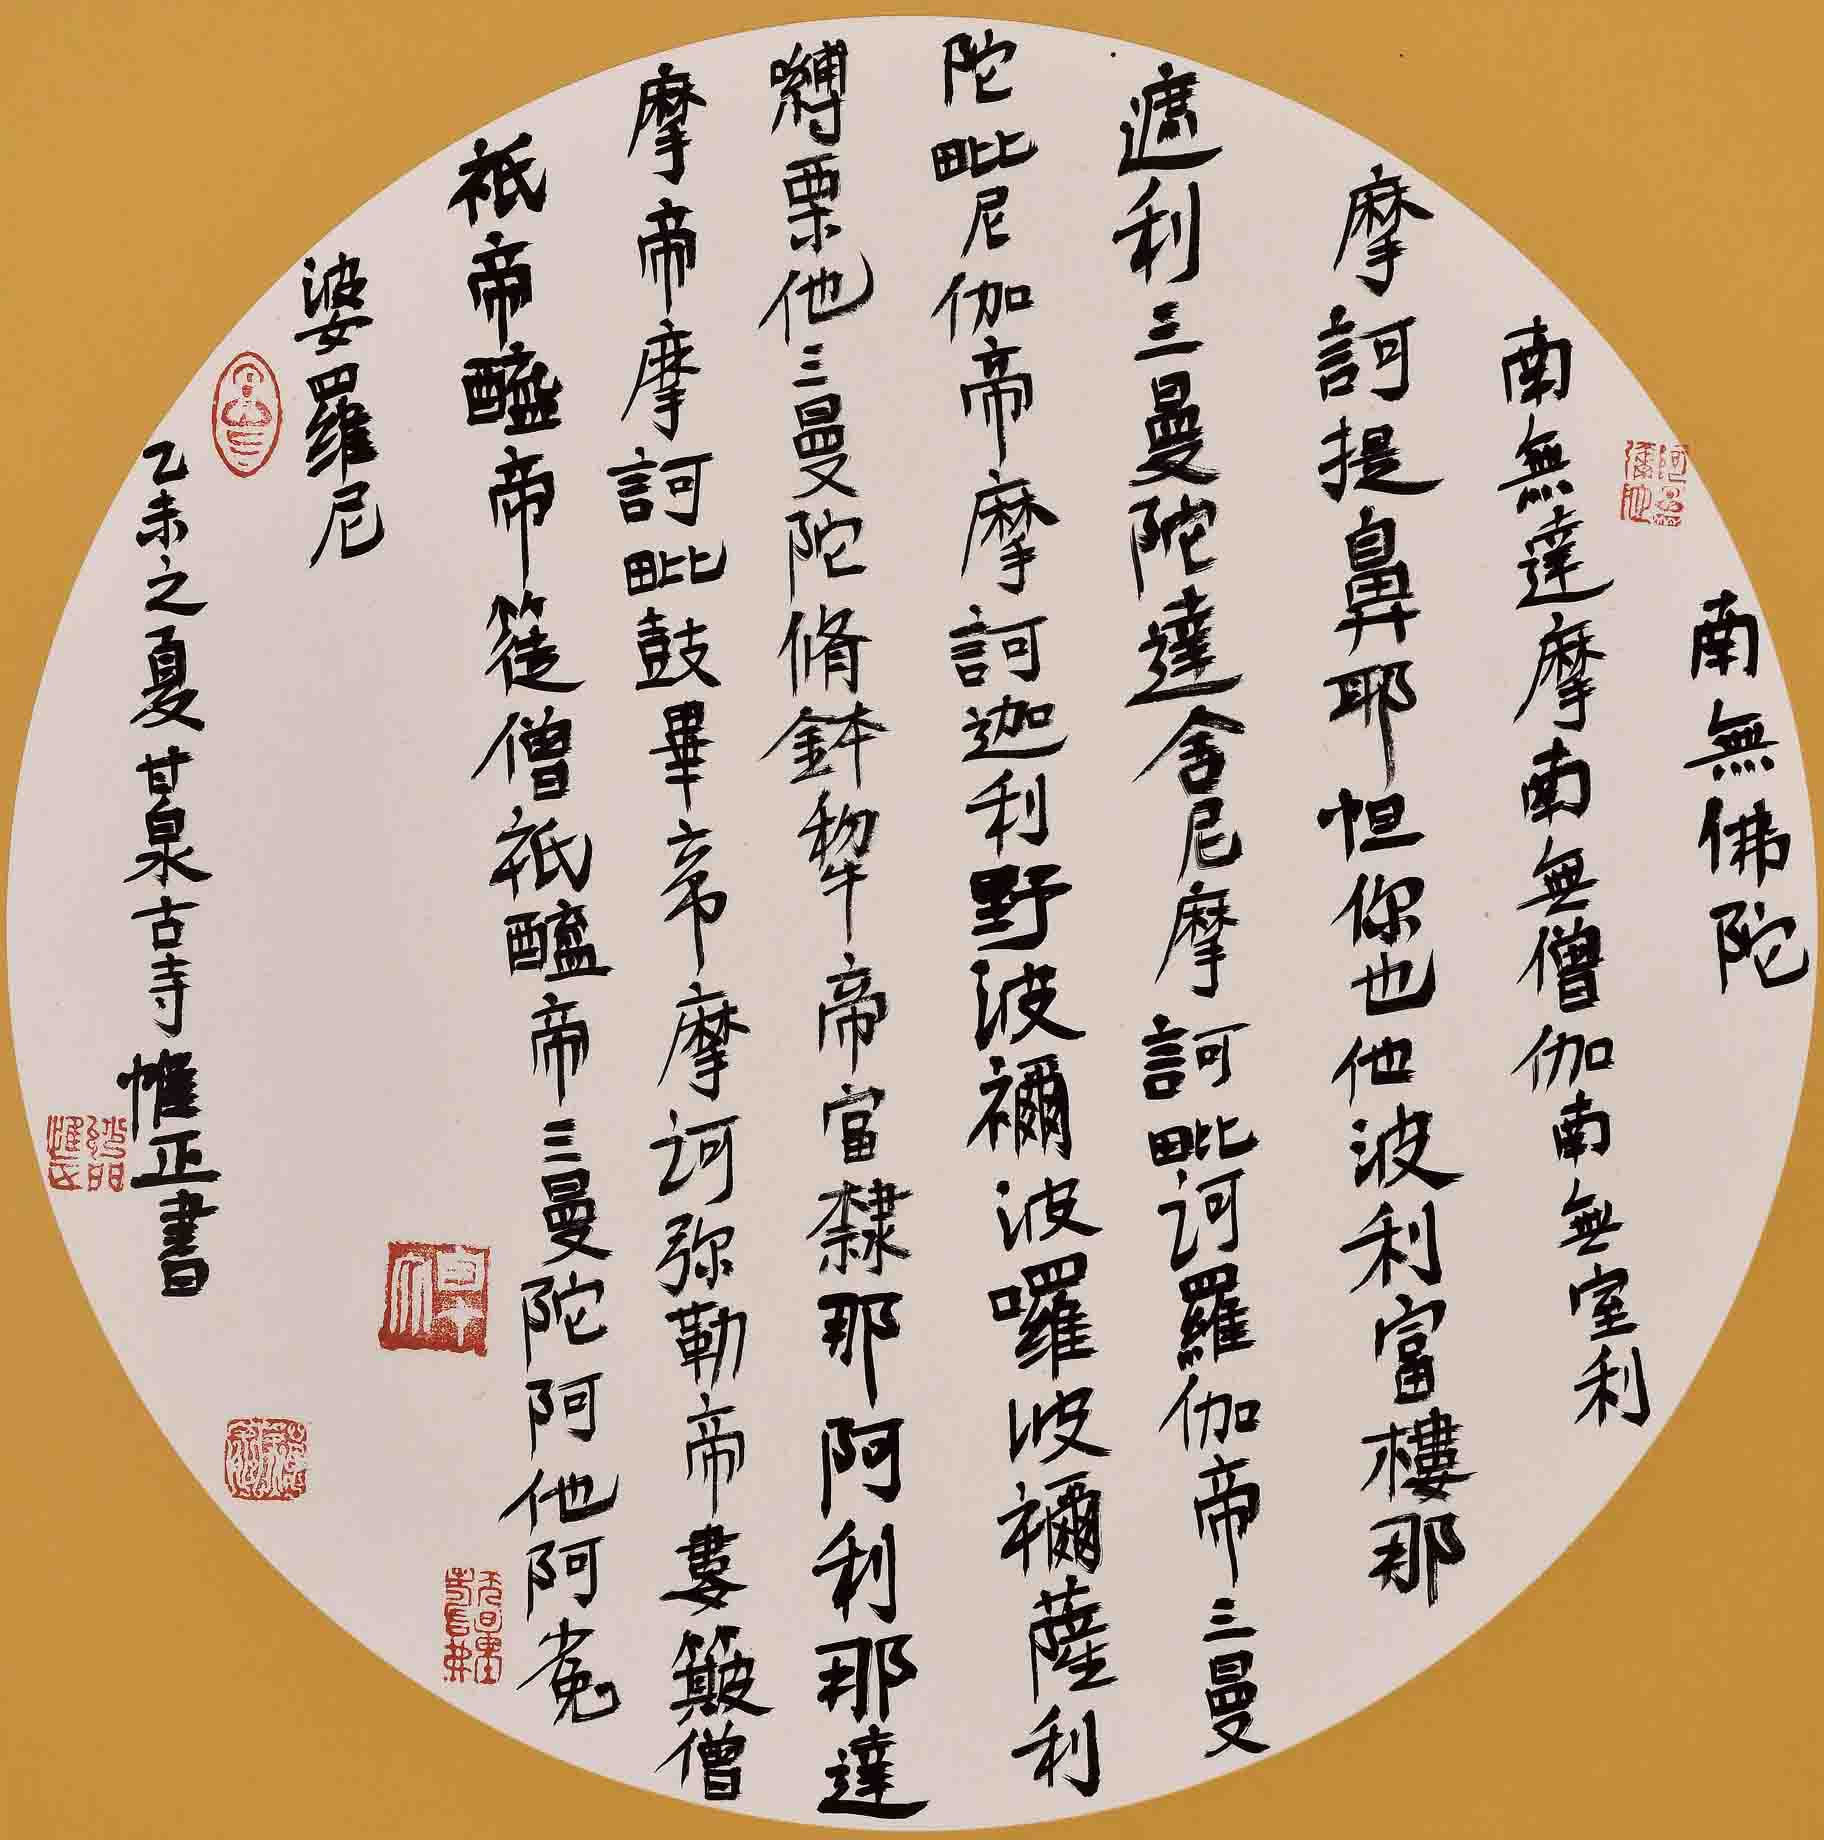 南無佛陀
南無達摩南無僧伽南無室利
摩訶提鼻耶怛你也他波利富樓那
遮利三曼陀達舍尼摩訶毗訶羅伽帝三曼
陀毗尼伽帝摩訶迦利野波禰波囉波禰薩利
嚩栗他三曼陀脩鉢犂帝富隸那阿利那達
摩帝摩訶毗鼓畢帝摩訶弥勒帝婁簸僧
祇帝醯帝簁僧祇醯帝三曼陀阿他阿㝹
婆羅尼
乙未之夏甘泉古寺惟正書